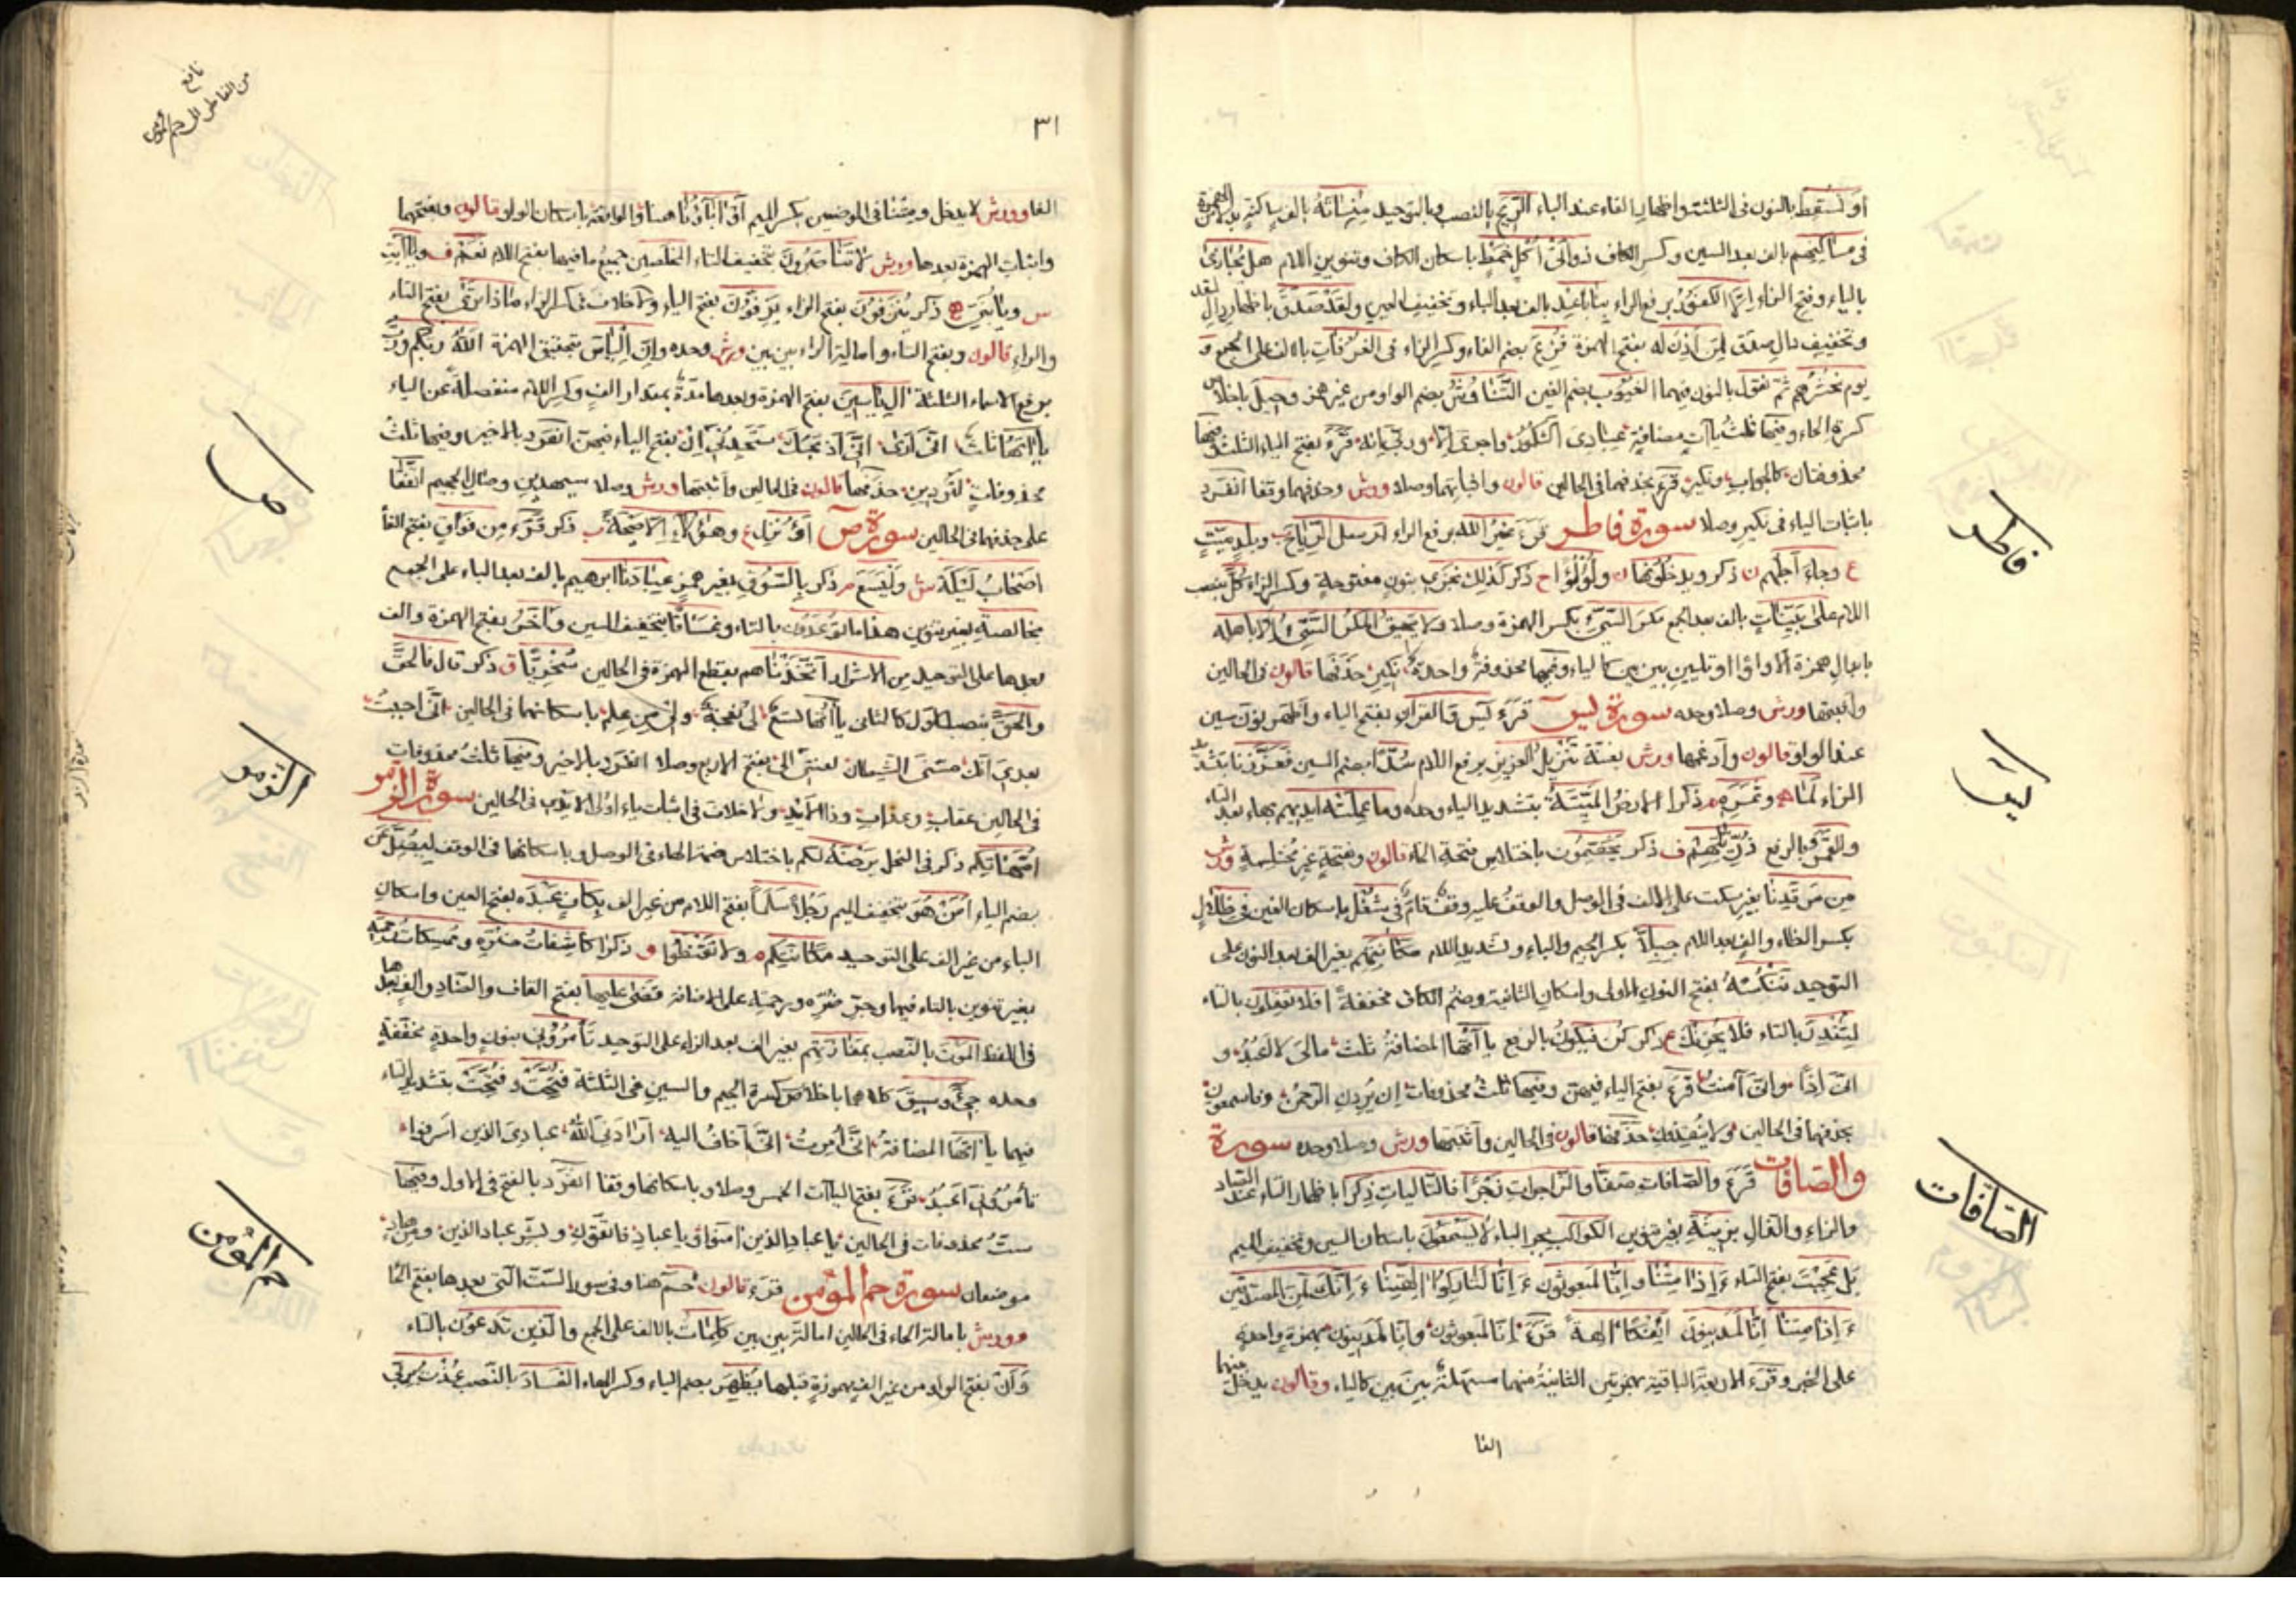 او نسقط بالنون فى الثلثة واظهار الفاء عند الباء الريح بالنصب وبالتوحيد منسأته بالف ساكنة بدلا من الهمزة
فى مساكنهم بالف بعد السين وكسر الكاف ذواتى أكل خمط باسكان الكاف وتنوين اللام هل يجازى
بالياء وفتح الزاء الا الكفور برفع الراء ربنا باعد بالف بعد الباء وتخفيف العين ولقد صدق باظهار دال لقد
وتخفيف دال صدق لمن اذن له بفتح الهمزة فزع بضم الفاء وكسر الزاء فى الغرفات بالالف على الجمع و
يوم نحشرهم ثم نقول بالنون فيهما الغيوب بضم الغين التناوش بضم الواو من غير همز وحيل باخلاص
كسرة الحاء وفيها ثلث ياآت مضافة عبادى الشكور واجرى الا وربى انه قرء بفتح الياء الثلث وفيها
محذوفتان كالجواب ونكير قرء بحذفهما فى الحالين قالون واثباتهما وصلا ورش وحذفهما وقفا انفرد
باثبات الياء فى نكير وصلا سورة فاطر قرء غير الله برفع الراء ارسل الرياح وبلد ميت
ع وجاء أجلهم ن ذكر ويدخلونها ن ولؤلؤا ح ذكر كذلك نجزى بنون مفتوحة وكسر الزاء كل بنصب
اللام على بينات بالف بعد الجمع مكر السيئ بكسر الهمزة وصلا ولا يحيق المكر السيئ الا باهله
بابدال همزة الا واوا او تليين بين بين كالياء وفيها محذوفة واحدة نكير حذفها قالون فى الحالين
واثبتها ورش وصلا وحده سورة يس قرء يس والقرآن بفتح الياء واظهر نون سين
عند الواو قالون وأدغمها ورش بغنة تنزيل العزيز برفع اللام سدا بضم السين فعززنا بتشديد
الزاء لما وثمره ذكرا الارض الميتة بتشديد الياء وحده وما عملته ايديهم بهاء بعد التاء
والقمر بالرفع ذريتهم ف ذكر يخصمون باختلاس فتحة الخاء قالون وبفتحة غير مختلسة ورش
من مرقدنا بغير سكت على الالف فى الوصل والوقف عليه وقف تام فى شغل باسكان الغين فى ظلال
بكسر الظاء والف بعد اللام جبلا بكسر الجيم والباء وتشديد اللام مكانتهم بغير الف بعد النون على
التوحيد ننكسه بفتح النون الاولى واسكان الثانية وضم الكاف مخففة افلا تعقلون بالتاء
لتنذر بالتاء فلا يحزنك ع ذكر كن فيكون بالرفع ياآتها المضافة ثلث مالى لا اعبد و
انى اذا وانى آمنت قرء بفتح الياء فيهن وفيها ثلث محذوفات ان يردن الرحمن وفاسمعون
بحذفهما فى الحالين ولا ينقذون حذفها قالون فى الحالين وأثبتها ورش وصلا وحده سورة
والصافات قرء والصافات صفا والزاجرات زجرا فالتاليات ذكرا باظهار التاء عند الصاد
والزاء والذال بزينة بغير تنوين الكواكب بجر الباء لا يسمعون باسكان السين وتخفيف الميم
بل عجبت بفتح التاء ءاذا متنا وانا لمبعوثون ءانا لتاركوا الهتنا ءانك لمن المصدقين
ءاذا متنا انا لمدينون أئفكا الهة قرء انا لمبعوثون وانا لمدينون بهمزة واحدة
على الخبر وقرء الاربعة الباقية بهمزتين الثانية منهما مسهلة بين بين كالياء وقالون يدخل بينهما
الفا
فاطر
يس
الصافات
٣١
نافع
من الفاطر الى حم المؤمن
الفا وورش لا يدخل ومتنا فى الموضعين بكسر الميم آو اباؤنا هنا والواقعة باسكان الواو قالون وبفتحهما
واثبات الهمزة بعدها ورش لا تناصرون بتخفيف التاء المخلصين جميع ما فيها بفتح اللام نعم ف ويا ابت
س ويا بنى ذكر ينزفون بفتح الزاء يزفون بفتح الياء ولا خلاف فى كسر الزاء ماذا ترى بفتح التاء
والراء قالون وبفتح التاء وامالة الراء بين بين ورش وحده وان الياس بتحقيق الهمزة الله ربكم ورب
برفع الاسماء الثلثة ال ياسين بفتح الهمزة وبعدها مدة بمقدار الف وكسر اللام منفصلة عن الياء
ياآتها ثلث انى ارى انى اذبحك ستجدنى ان بفتح الياء فيهن انفرد بالاخير وفيها ثلث
محذوفات لتردين حذفها قالون فى الحالين وأثبتها ورش وصلا سيهدين وصال الجحيم اتفقا
على حذفهما فى الحالين سورة ص أؤنزل ع وهؤلاء الا صيحة ب ذكر قرء من فواق بفتح الفاء
اصحاب ليكة ش وليسع م ذكر بالسوق بغير همز عبادنا ابرهيم بالف بعد الباء على الجمع
بخالصة بغير تنوين هذا ما توعدون بالتاء وغساقا بتخفيف السين وآخر بفتح الهمزة والف
بعدها على التوحيد من الاشرار أتخذناهم بقطع الهمزة فى الحالين سخريا ق ذكر قال فالحق
والحق بنصب الاول كالثانى ياآتها لست ولى نعجة ولى من علم باسكانهما فى الحالين انى احببت
بعدى انك مسنى الشيطان لعنتى الى بفتح الاربع وصلا انفرد بالاخير وفيها ثلث محذوفات
فى الحالين عقاب وعذاب وذا الايد ولا خلاف فى اثبات ياء اولى الايدى فى الحالين سورة الزمر
امهاتكم ذكر فى النحل يرضه لكم باختلاس ضمة الهاء فى الوصل وباسكانها فى الوقف ليضل عن
بضم الياء امن هو بتخفيف الميم رجلا سلما بفتح اللام من غير الف بكاف عبده بفتح العين واسكان
الباء من غير الف على التوحيد مكانتكم ه ولا تقنطوا و ذكرا كاشفات ضره وممسكات رحمته
بغير تنوين بالتاء فيهما وجر ضره ورحمته على الاضافة قضى عليها بفتح القاف والضاد والف بعدها
فى اللفظ الموت بالنصب بمفازتهم بغير الف بعد الزاء على التوحيد تأمرونى بنون واحدة مخففة
وحده جئ وسيق كلاهما باخلاص كسرة الجيم والسين فى الثلثة فتحت وفتحت بتشديد التاء
فيهما ياآتها المضافة انى أمرت انى آخاف اليه أرادنى الله عبادى الذين اسرفوا
تأمرونى اعبد قرء بفتح الياآت الخمس وصلا وباسكانها وقفا انفرد بالفتح فى الاول وفيها
ست محذوفات فى الحالين يا عباد الذين امنوا ويا عباد فاتقون وبشر عباد الذين ومن هاد
موضعان سورة حم المؤمن قرء قالون حم هنا وفى سور الست التى بعدها بفتح الحا
وورش بامالة الحاء فى الحالين امالة بين بين كلمات بالالف على الجمع والذين تدعون بالتاء
وأن بفتح الواو من غير الف بهمزة قبلها يظهر بضم الياء وكسر الهاء الفساد بالنصب عذت بربى
ص
الزمر
حم المؤمن